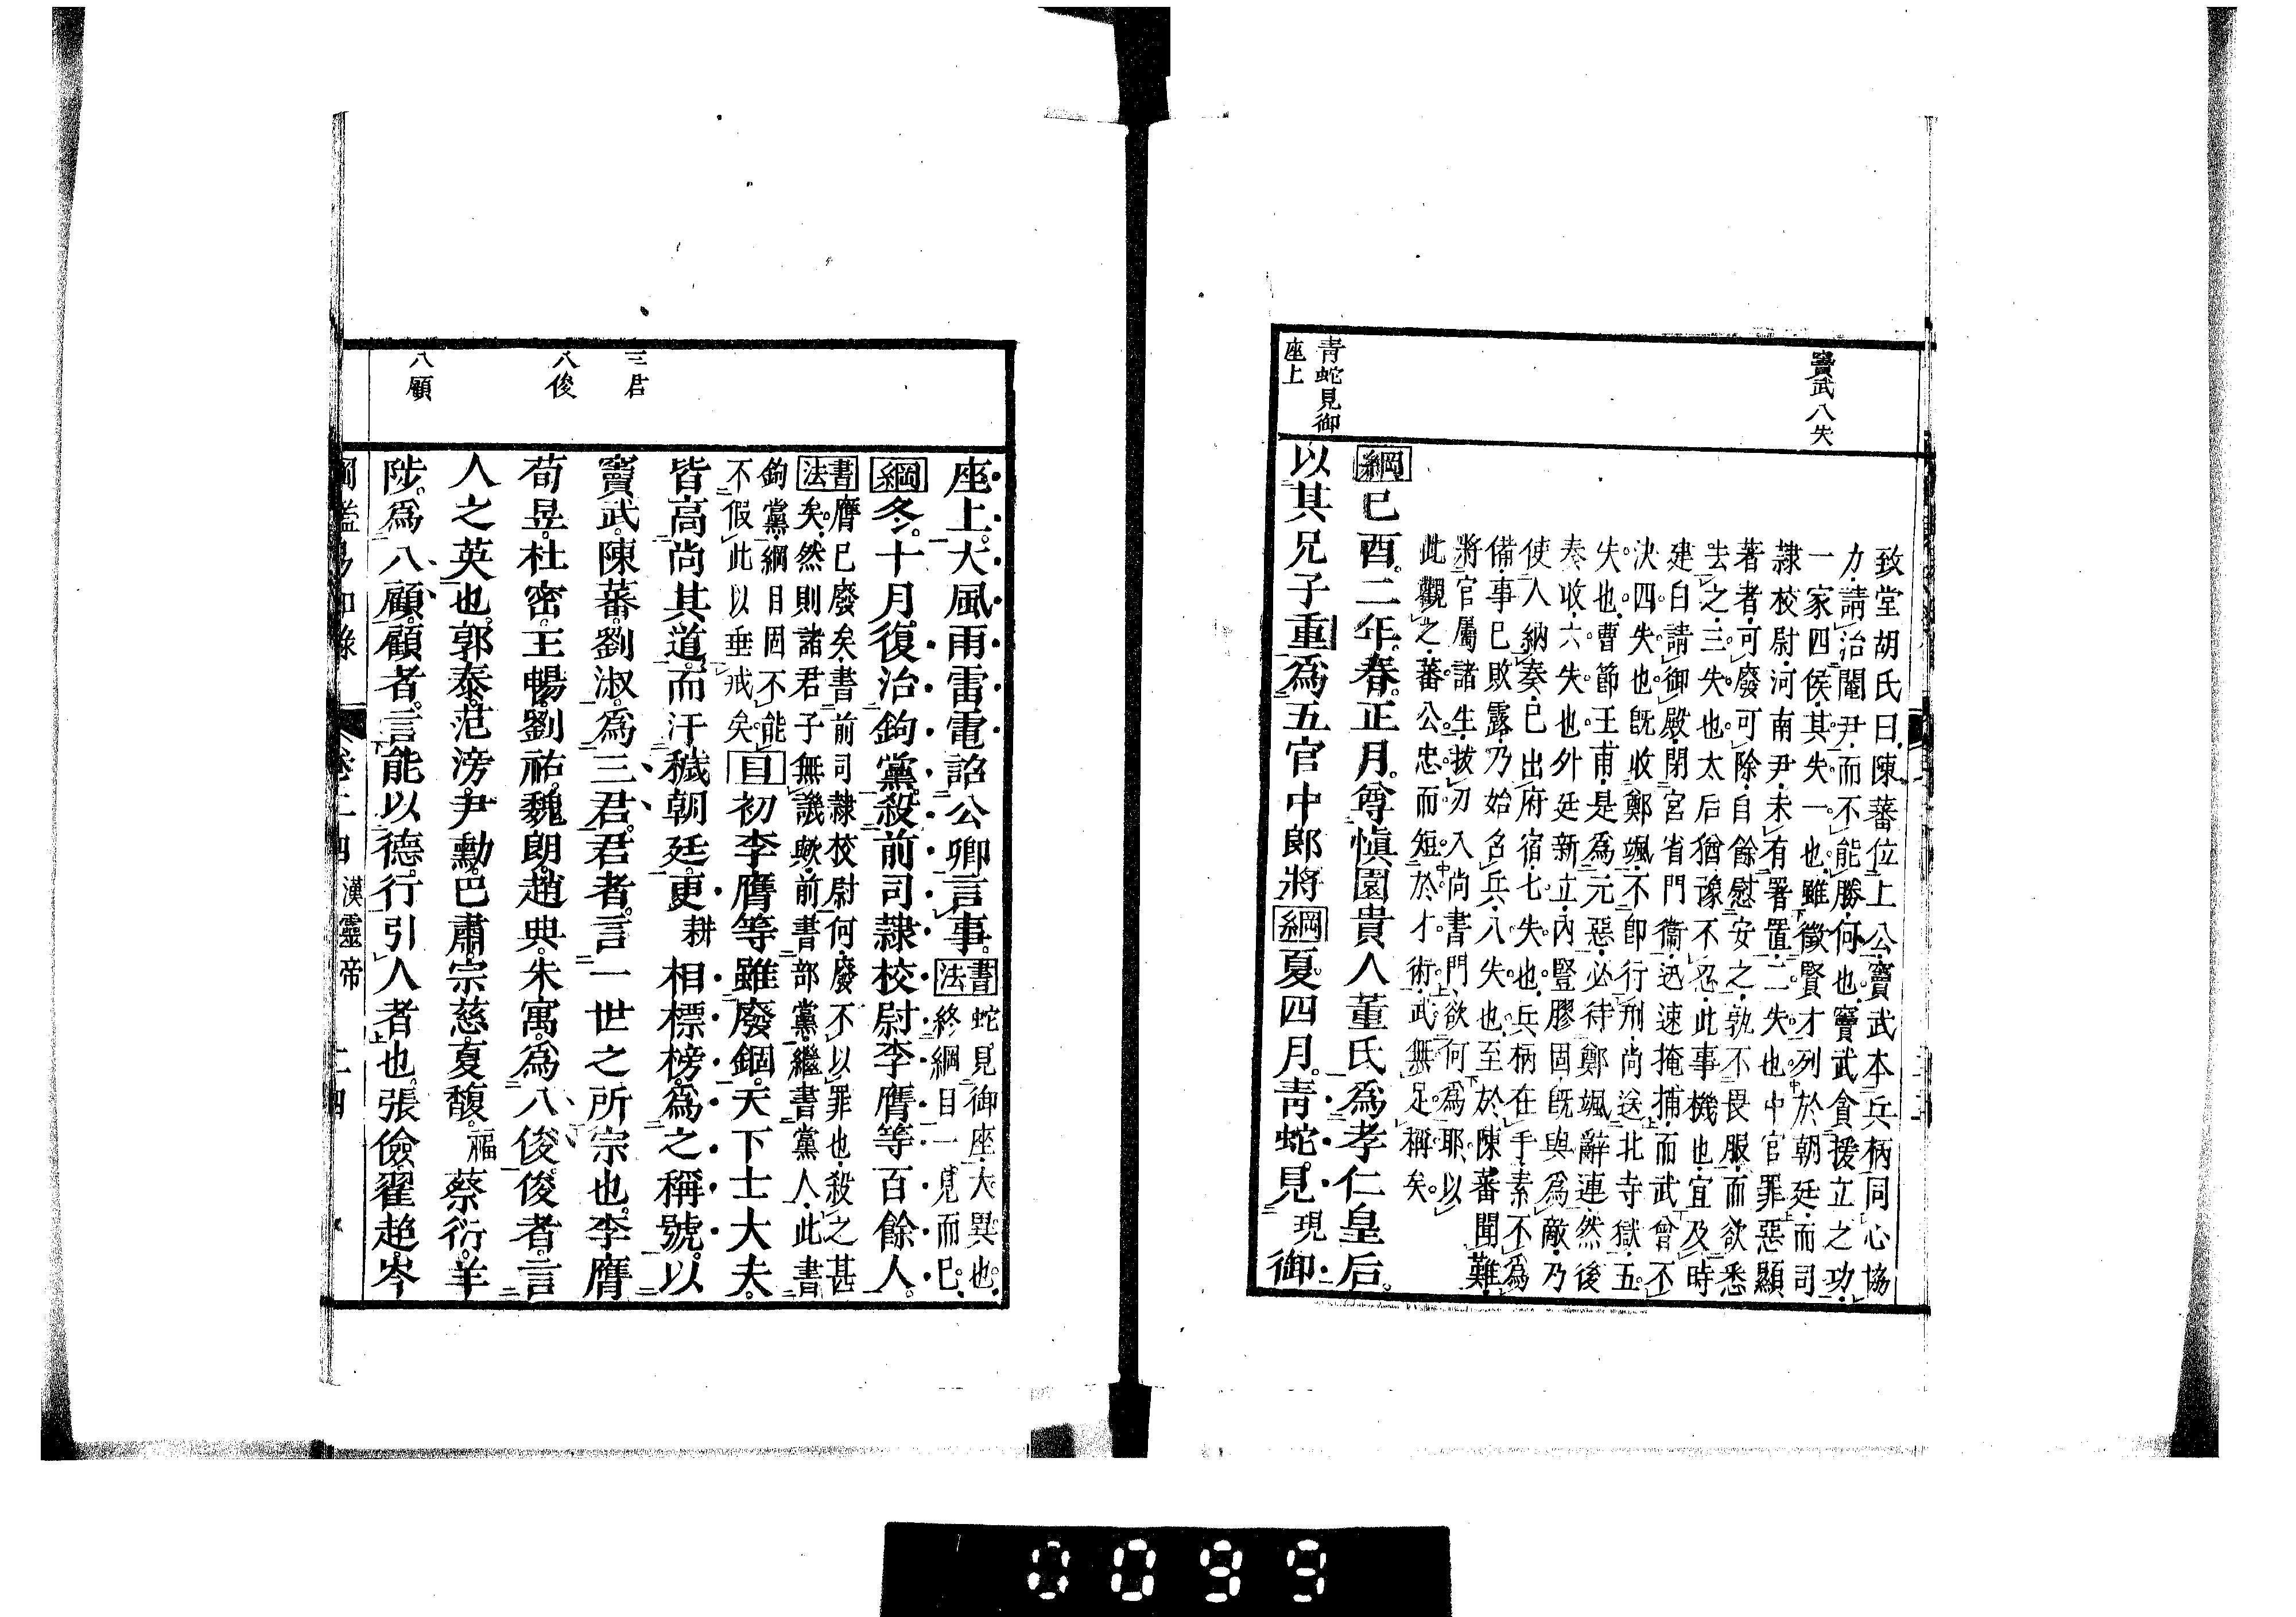 竇武八失
致堂胡氏曰陳蕃位上公竇武本兵柄同心協
力請治閹尹而不能勝何也竇武貪援立之功
一家四侯其失一也雖徵賢才列於朝廷而司
隸校尉河南尹未有署置二失也中官罪惡顯
著者可廢可除自餘慰安之孰不畏服而欲悉
去之三失也太后猶豫不忍此事機也宜及時
建白請御殿閉宮省門衞迅速掩捕而武曾不
決四失也既收鄭颯不卽行刑尚送北寺獄五
失也曹節王甫是爲元惡必待鄭颯辭連然後
奏收六失也外廷新立內豎膠固旣與爲敵乃
使人納奏已出府宿七失也兵柄在手素不爲
備事已敗露乃始召兵八失也至於陳蕃聞難
將官屬諸生拔刃入尚書門欲何爲耶以
此觀之蕃公忠而短於才術武無足稱矣
綱己酉二年春正月尊愼園貴人董氏爲孝仁皇后
青蛇見御
座上
以其兄子重爲五官中郎將綱夏四月青蛇見現御
座上大風雨雷電詔公卿言事書法蛇見御座大異也
終綱目一見而已
綱冬十月復治鉤黨殺前司隸校尉李膺等百餘人
書法膺已廢矣書前司隸校尉何廢不以罪也殺之甚
矣然則諸君子無譏歟前書部黨繼書黨人此書
鉤黨綱目固不能
不假此以垂戒矣目初李膺等雖廢錮天下士大夫
皆高尚其道而汙穢朝廷更耕相標榜爲之稱號以
三君
竇武陳蕃劉淑爲三君君者言一世之所宗也李膺
八俊
荀昱杜密王暢劉祐魏朗趙典朱寓爲八俊俊者言
人之英也郭泰范滂尹勳巴肅宗慈夏馥福蔡衍羊
八顧
陟爲八顧顧者言能以德行引人者也張儉翟超岑
漢靈帝
0099